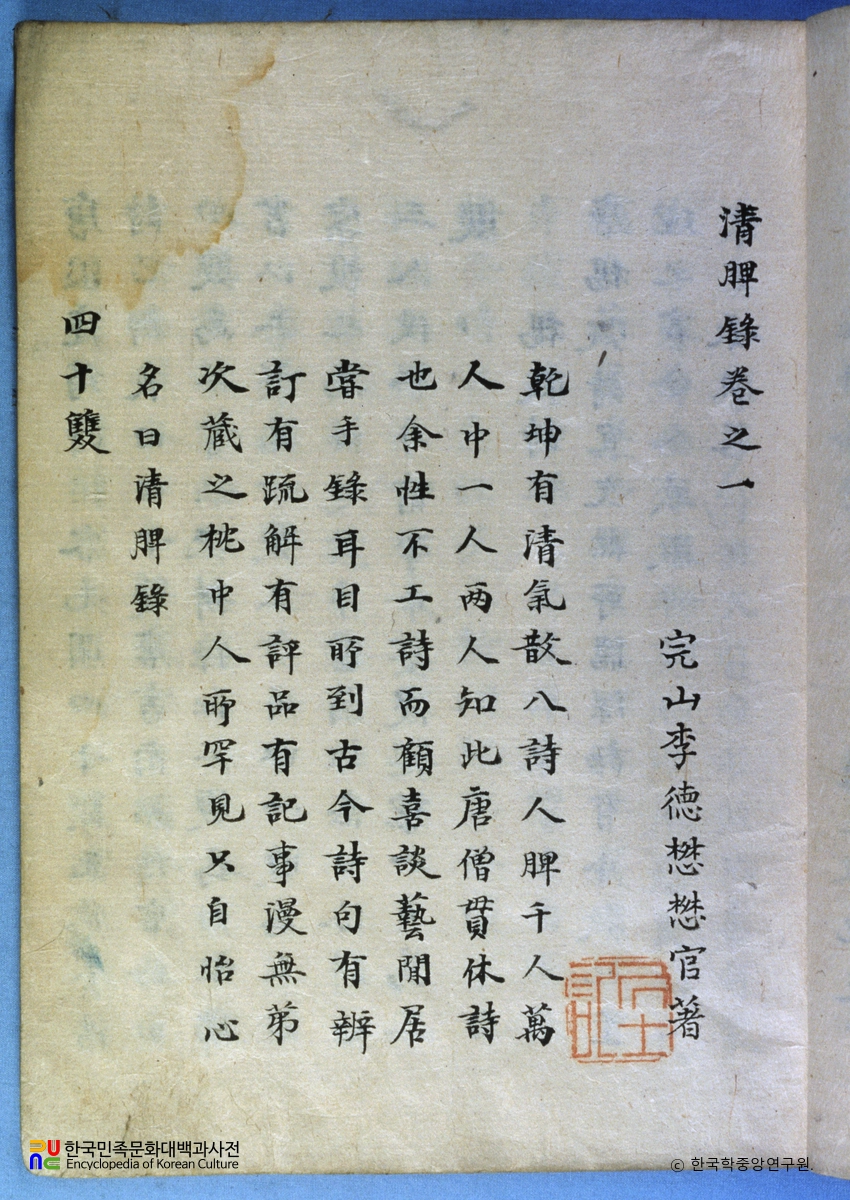 清脾錄卷之一
完山李德懋懋官著
乾坤有清氣散入詩人脾千人萬
人中一人兩人知此唐僧貫休詩
也余性不工詩而顧喜談藝閒居
甞手錄耳目所到古今詩句有辨
訂有疏解有評品有記事漫無第
次藏之枕中人所罕見只自怡心
名曰清脾錄
四十雙
한국민족문화대백과사전
Encyclopedia of Korean Culture
© 한국학중앙연구원.